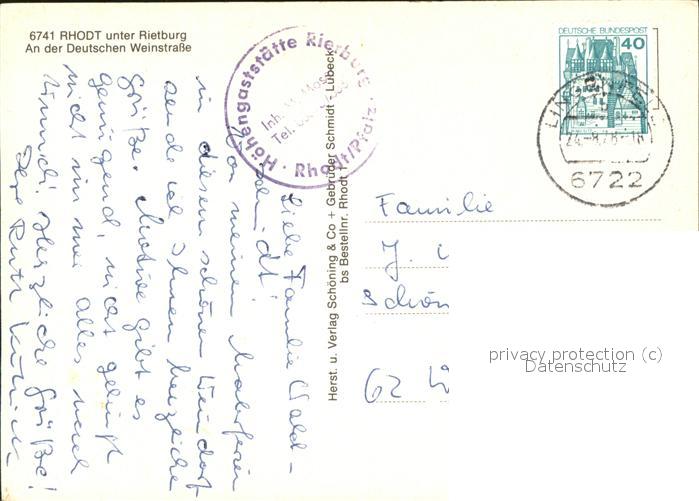 6741 RHODT unter Rietburg
An der Deutschen Weinstraße
Höhengaststätte Rietburg
Inh.
Tel.
Rhodt/Pfalz
DEUTSCHE BUNDESPOST
40
6722
Herst. u. Verlag Schöning & Co + Gebrüder Schmidt · Lübeck
bs Bestellnr. Rhodt 1
Liebe Familie Wald-
schmidt!
Von meinen Malerferien
in diesem schönen Weindorf
sende ich Ihnen herzliche
Grüße. Motive gibt es
genügend, nicht gelingt
nicht immer alles nach
Wunsch. Herzliche Grüße!
Ihre Ruth
Familie
J.
Schön
62 W
privacy protection (c)
Datenschutz